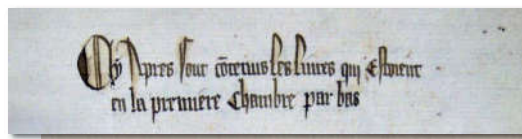 Cy Apres sont cōtenus les liures qui Estoient
en la premiere Chambre par bas